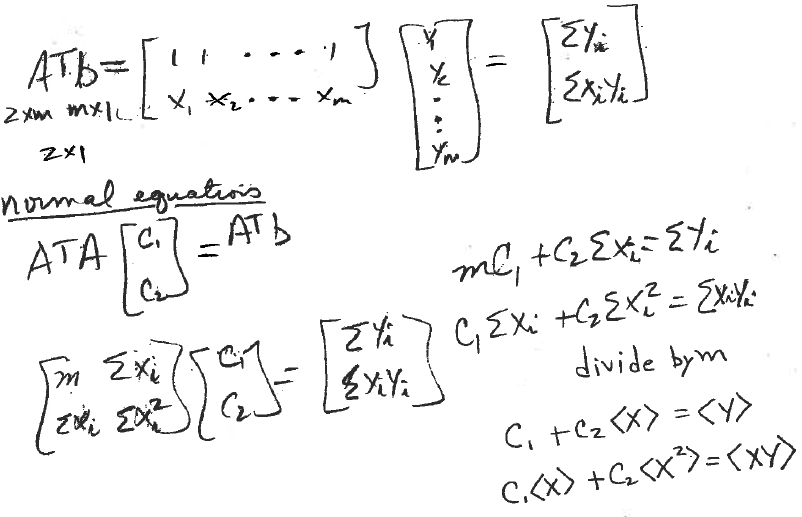 ATb = [ 1 1 · · · · 1 ; x₁ x₂ · · · xₘ ] [ y₁ ; y₂ ; · ; · ; yₘ ] = [ Σyᵢ ; Σxᵢyᵢ ]
2xm mx1
2x1
normal equations
ATA [ C₁ ; C₂ ] = ATb
[ m Σxᵢ ; Σxᵢ Σxᵢ² ] [ C₁ ; C₂ ] = [ Σyᵢ ; Σxᵢyᵢ ]
mC₁ + C₂ Σxᵢ = Σyᵢ
C₁ Σxᵢ + C₂ Σxᵢ² = Σxᵢyᵢ
divide by m
C₁ + C₂ <x> = <y>
C₁<x> + C₂<x²> = <xy>